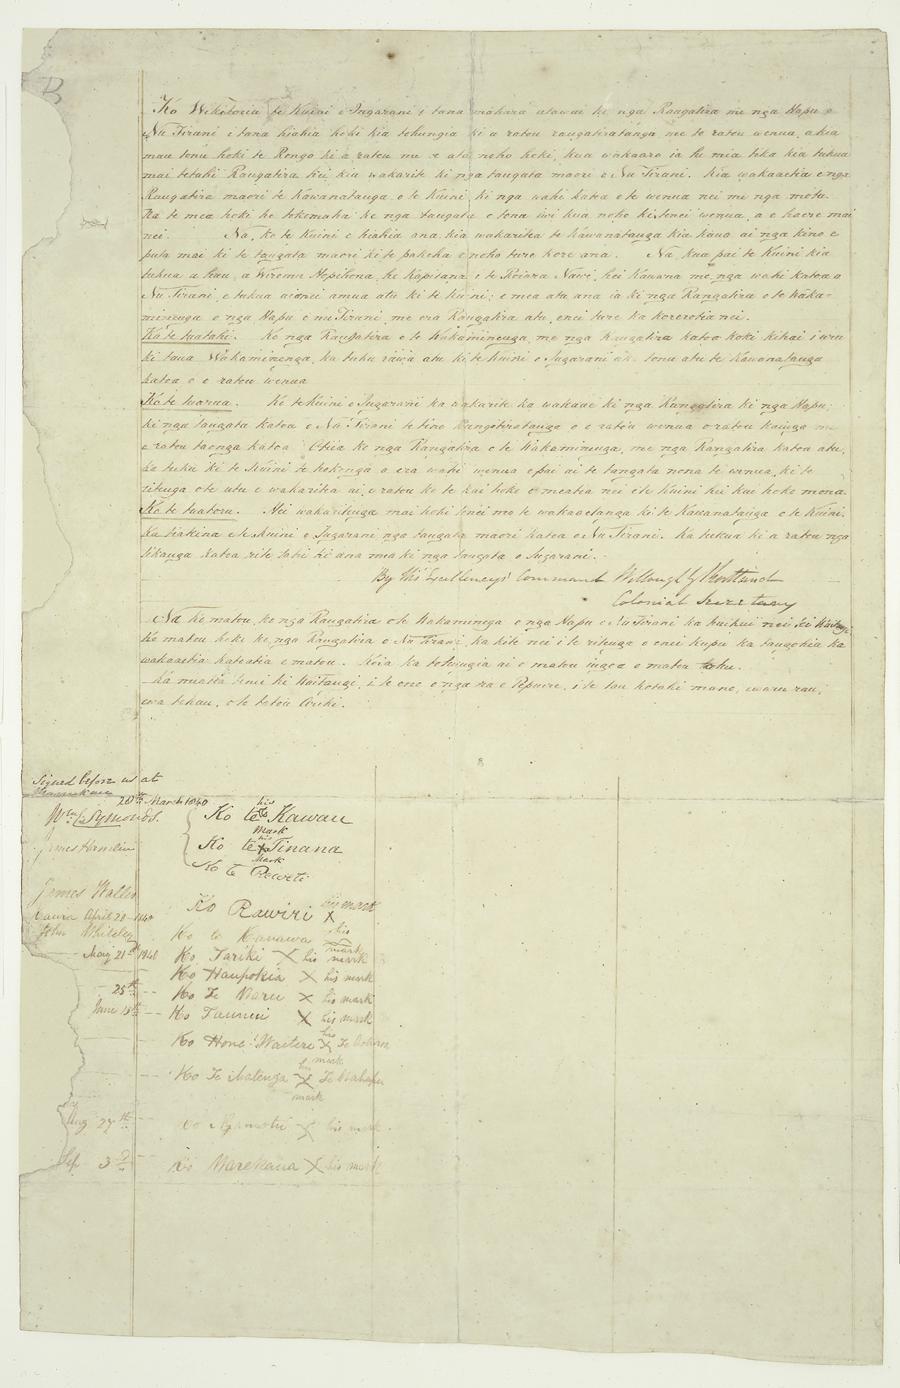 B
Ko Wikitoria te Kuini o Ingarani i tana mahara atawai ki nga Rangatira me nga Hapu o
Nu Tirani i tana hiahia hoki kia tohungia ki a ratou rangatiratanga me to ratou wenua, a kia
mau tonu hoki te Rongo ki a ratou me te ata noho hoki, kua wakaaro ia he mea tika kia tukua
mai tetahi Rangatira hei kai wakarite ki nga tangata maori o Nu Tirani. Kia wakaaetia e nga
Rangatira maori te Kawanatanga o te Kuini, ki nga wahi katoa o te wenua nei me nga motu.
Na te mea hoki he tokomaha ke nga tangata o tona iwi kua noho ki tenei wenua, a e haere mai
nei. Na, ko te Kuini e hiahia ana kia wakaritea te Kawanatanga kia kaua ai nga kino e
puta mai ki te tangata maori ki te pakeha e noho ture kore ana. Na, kua pai te Kuini kia
tukua a hau, a Wiremu Hopihona, he Kapitana o te Roiara Nawi, hei Kawana mo nga wahi katoa o
Nu Tirani, e tukua aianei amua atu ki te Kuini; e mea atu ana ia ki nga Rangatira o te waka-
minenga o nga Hapu o Nu Tirani, me era Rangatira atu, enei ture ka korerotia nei.
Ko te tuatahi. Ko nga Rangatira o te Wakaminenga, me nga Rangatira katoa hoki kihai i uru
ki taua Wakaminenga, ka tuku rawa atu ki te Kuini o Ingarani ake tonu atu te Kawanatanga
katoa o o ratou wenua
Ko te tuarua. Ko te Kuini o Ingarani ka wakarite ka wakaae ki nga Rangatira ki nga Hapu,
ki nga tangata katoa o Nu Tirani te tino Rangatiratanga o o ratou wenua o ratou kainga me
o ratou taonga katoa. Otiia ko nga Rangatira o te Wakaminenga, me nga Rangatira katoa atu,
ka tuku ki te Kuini te hokonga o era wahi wenua e pai ai te tangata nona te wenua, ki te
ritenga o te utu e wakaritea ai e ratou ko te kai hoko e meatia nei e te Kuini hei kai hoko mona.
Ko te tuatoru. Hei wakaritenga mai hoki tenei mo te wakaaetanga ki te Kawanatanga o te Kuini.
Ka tiakina e te Kuini o Ingarani nga tangata maori katoa o Nu Tirani. Ka tukua ki a ratou nga
tikanga katoa rite tahi ki ana mea ki nga tangata o Ingarani.
By His Excellency's Command Willoughby Shortland
Colonial Secretary
Na ko matou, ko nga Rangatira o te Wakaminenga o nga Hapu o Nu Tirani ka huihui nei ki Waitangi
ko matou hoki ko nga Rangatira o Nu Tirani ka kite nei i te ritenga o enei kupu ka tangohia ka
wakaaetia katoatia e matou. Koia ka tohungia ai o matou ingoa o matou tohu.
Ka meatia tenei ki Waitangi, i te ono o nga ra o Pepuere, i te tau kotahi mano, ewaru rau,
ewa tekau, o to tatou Ariki.
Signed before us at
20th March 1840
Wm C Symonds.
Ko te Kawau his mark
James Hamlin
Ko te Tinana his X mark
Ko te Reweti
James Wallis
Ko Rawiri his mark X
April 28 1840
John Whiteley
Ko te Kanawa his mark
May 21st 1840 Ko Tariki X his mark
Ko Haupokia X his mark
25th Ko Te Waru X his mark
June 15th Ko Taunui X his mark
Ko Hone Waitere his X mark
Ko Te Matenga his X mark Te Wahapu
Aug 27th Ko Ngamotu X his mark
Sep 3d Ko Warekaua X his mark